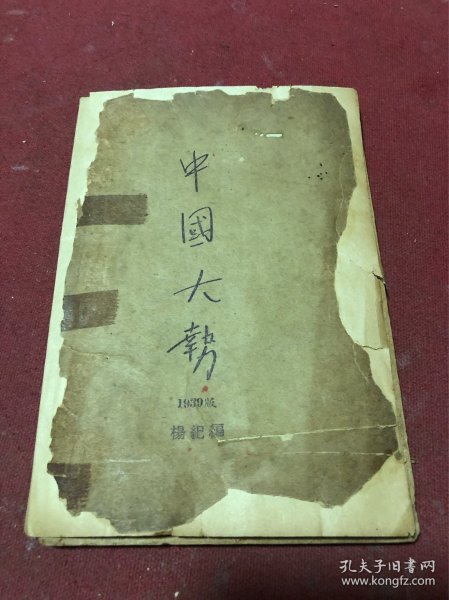 中國大勢
1939版
楊紀編
孔夫子旧书网
www.kongfz.com